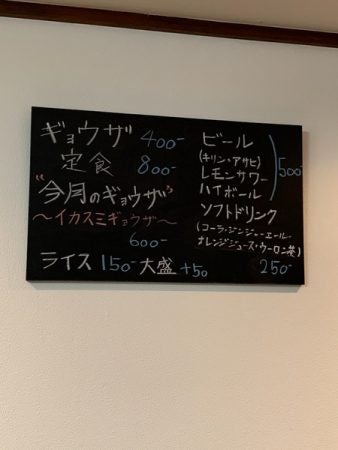 ギョウザ 400-
定食 800-
"今月のギョウザ"
〜イカスミギョウザ〜
600-
ライス 150- 大盛 +50
ビール
(キリン・アサヒ)
レモンサワー
ハイボール
500-
ソフトドリンク
(コーラ・ジンジャーエール・
オレンジジュース・ウーロン茶)
250-